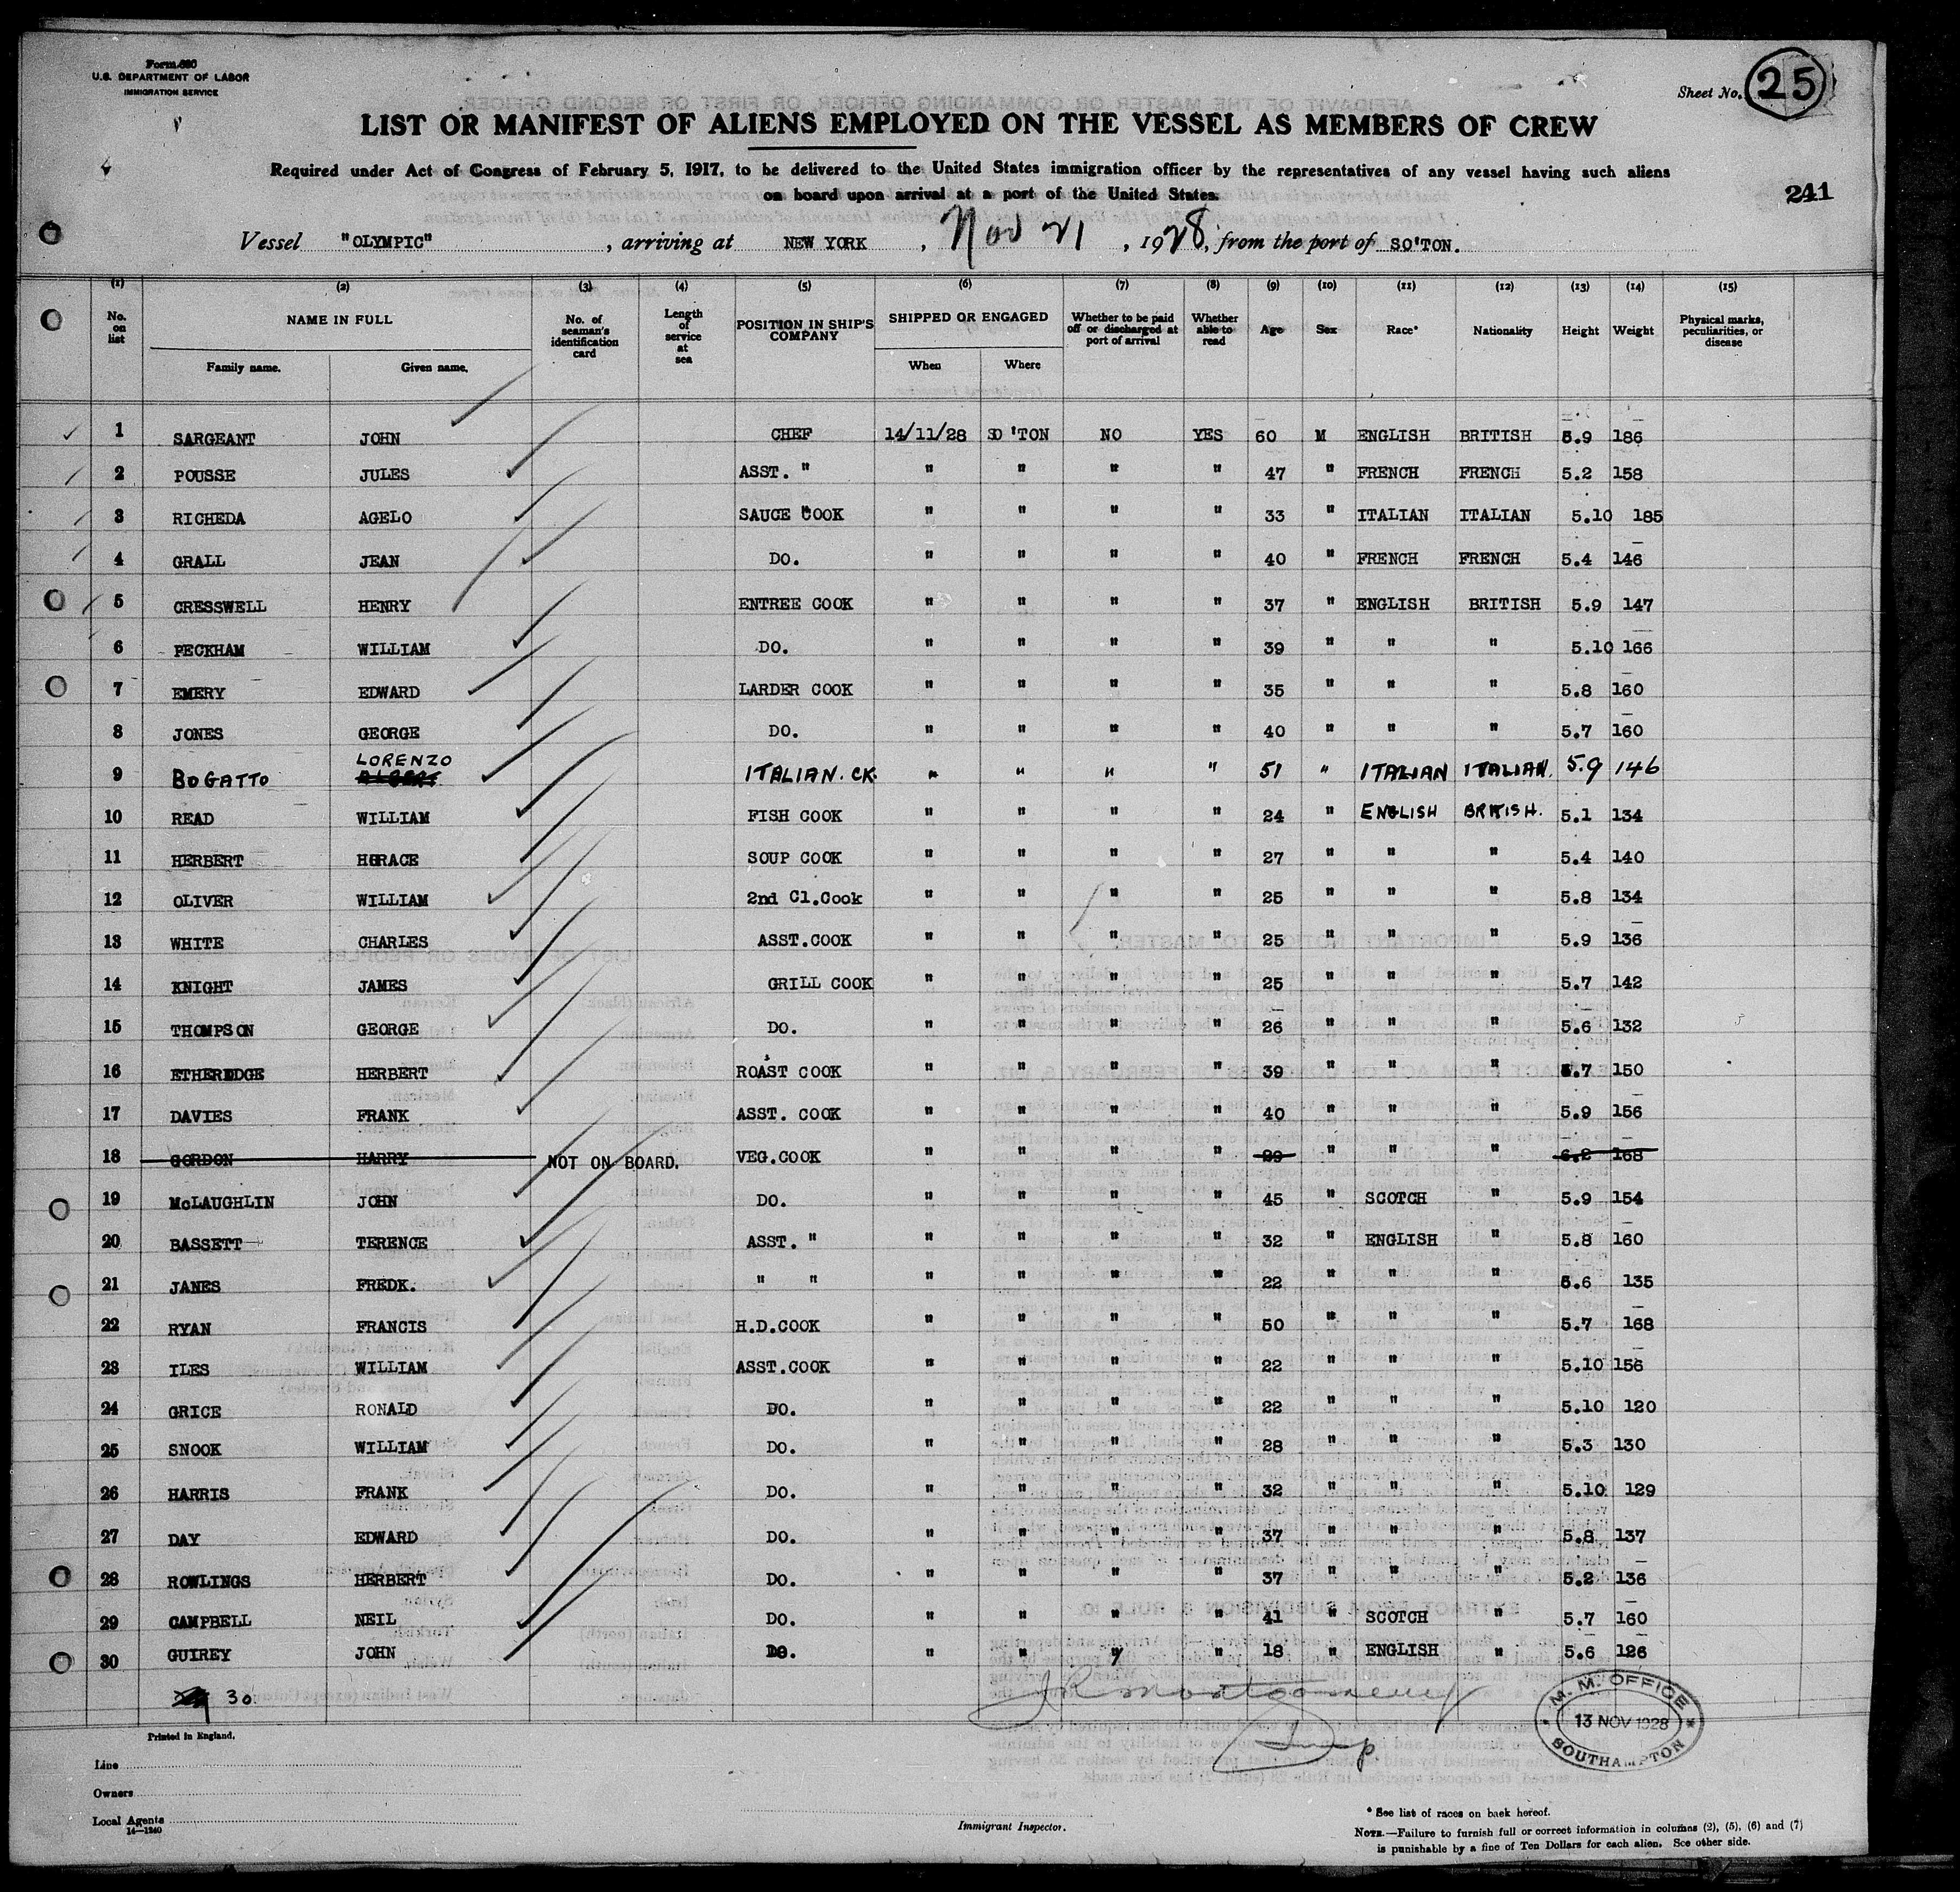 Form 680
U.S. DEPARTMENT OF LABOR
IMMIGRATION SERVICE
Sheet No. 25
LIST OR MANIFEST OF ALIENS EMPLOYED ON THE VESSEL AS MEMBERS OF CREW
Required under Act of Congress of February 5, 1917, to be delivered to the United States immigration officer by the representatives of any vessel having such aliens
on board upon arrival at a port of the United States.
241
Vessel "OLYMPIC", arriving at NEW YORK, Nov 21, 1928, from the port of SO'TON.
(1) (2) (3) (4) (5) (6) (7) (8) (9) (10) (11) (12) (13) (14) (15)
No. on list NAME IN FULL Family name. Given name. No. of seaman's identification card Length of service at sea POSITION IN SHIP'S COMPANY SHIPPED OR ENGAGED When Where Whether to be paid off or discharged at port of arrival Whether able to read Age Sex Race* Nationality Height Weight Physical marks, peculiarities, or disease
1 SARGEANT JOHN CHEF 14/11/28 SO'TON NO YES 60 M ENGLISH BRITISH 5.9 186
2 POUSSE JULES ASST. " " " " " 47 " FRENCH FRENCH 5.2 158
3 RICHEDA AGELO SAUCE COOK " " " " 33 " ITALIAN ITALIAN 5.10 185
4 GRALL JEAN DO. " " " " 40 " FRENCH FRENCH 5.4 146
5 CRESSWELL HENRY ENTREE COOK " " " " 37 " ENGLISH BRITISH 5.9 147
6 PECKHAM WILLIAM DO. " " " " 39 " " " 5.10 166
7 EMERY EDWARD LARDER COOK " " " " 35 " " " 5.8 160
8 JONES GEORGE DO. " " " " 40 " " " 5.7 160
9 BOGATTO LORENZO ITALIAN. CK. " " " " 51 " ITALIAN ITALIAN. 5.9 146
10 READ WILLIAM FISH COOK " " " " 24 " ENGLISH BRITISH. 5.1 134
11 HERBERT HORACE SOUP COOK " " " " 27 " " " 5.4 140
12 OLIVER WILLIAM 2nd Cl.Cook " " " " 25 " " " 5.8 134
13 WHITE CHARLES ASST.COOK " " " " 25 " " " 5.9 136
14 KNIGHT JAMES GRILL COOK " " " " 25 " " " 5.7 142
15 THOMPSON GEORGE DO. " " " " 26 " " " 5.6 132
16 ETHEREDGE HERBERT ROAST COOK " " " " 39 " " " 5.7 150
17 DAVIES FRANK ASST. COOK " " " " 40 " " " 5.9 156
18 GORDON HARRY NOT ON BOARD. VEG.COOK " " " " 29 " " " 6.2 168
19 McLAUGHLIN JOHN DO. " " " " 45 " SCOTCH " 5.9 154
20 BASSETT TERENCE ASST. " " " " " 32 " ENGLISH " 5.8 160
21 JANES FREDK. " " " " " " 22 " " " 5.6 135
22 RYAN FRANCIS H.D.COOK " " " " 50 " " " 5.7 168
23 ILES WILLIAM ASST.COOK " " " " 22 " " " 5.10 156
24 GRICE RONALD DO. " " " " 22 " " " 5.10 120
25 SNOOK WILLIAM DO. " " " " 28 " " " 5.3 130
26 HARRIS FRANK DO. " " " " 32 " " " 5.10 129
27 DAY EDWARD DO. " " " " 37 " " " 5.8 137
28 ROWLINGS HERBERT DO. " " " " 37 " " " 5.2 136
29 CAMPBELL NEIL DO. " " " " 41 " SCOTCH " 5.7 160
30 GUIREY JOHN DO. " " " " 18 " ENGLISH " 5.6 126
30
JR Montgomery
M. M. OFFICE
13 NOV 1928
SOUTHAMPTON
Printed in England.
Line
Owners
Local Agents
14—1240
Immigrant Inspector.
* See list of races on back hereof.
NOTE.—Failure to furnish full or correct information in columns (2), (5), (6) and (7)
is punishable by a fine of Ten Dollars for each alien. See other side.